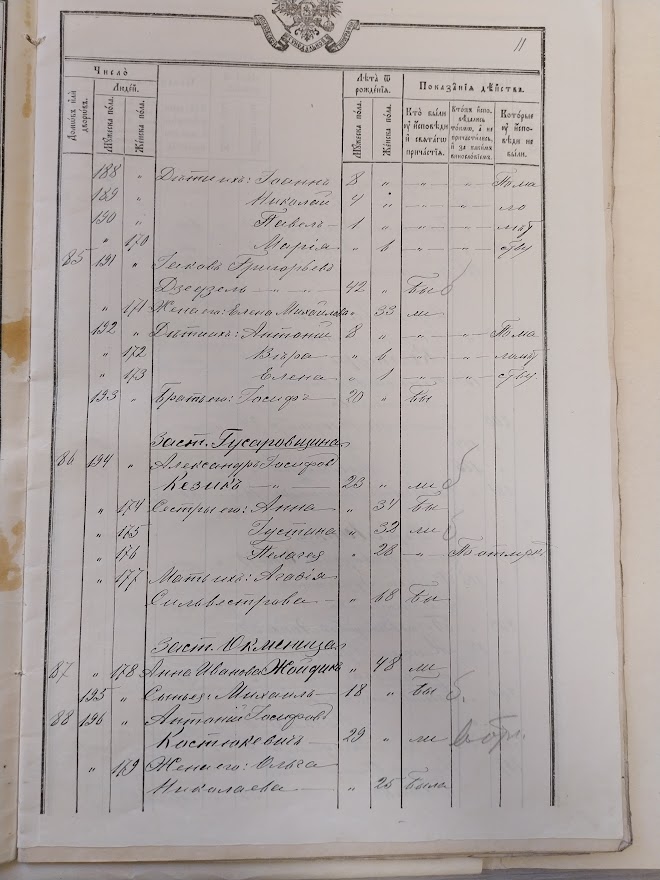 11
Число
Людей.
Лѣта ѿ рожденїя.
Показанїя дѣйства.
Домовъ или дворовъ.
Мужеска пола.
Женска пола.
Мужеска пола.
Женска пола.
Кто были у исповѣди и святаго причастїя.
Которые у исповѣди не были.
188 " Дѣти ихъ: Іоаннъ 8 " " " По ма
189 " Николай 4 " " " ло
190 " Павелъ 1 " " " лѣт
" 170 Марія " 6 " " ству
85 191 " Іаковъ Григорьевъ
Дзедзель 42 " Бы б
" 171 Жена его: Елена Михайлова " 33 ли
192 " Дѣти ихъ: Антоній 8 " " " По ма
" 172 Вѣра " 6 " " лолѣт
" 173 Елена " 1 " " ству
193 Братъ его: Іосифъ 20 " Бы
Заст. Гусаровщина
86 194 " Александръ Іосифов
Кезикъ 23 " ли б
" 174 Сестры его: Анна " 34 Бы
" 175 Іустина " 32 ли б
" 176 Пелагея " 28 " По отлуч.
" 177 Мать ихъ: Агафія
Сильвестрова " 68 Бы
Заст. Окменица
87 " 178 Анна Иванова Жойдикъ " 48 ли
195 " Сынъ ея: Михаилъ 18 " Бы б.
88 196 " Антоній Іосифовъ
Костюкевичъ 29 " ли
" 179 Жена его: Ольга
Николаева " 25 Была